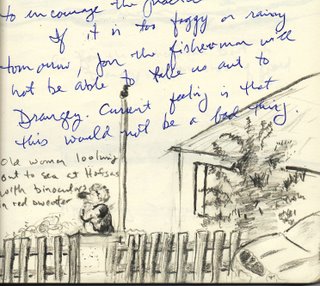 to encourage the
If it is too foggy or rainy
tomorrow, Jon the fisherman will
not be able to take us out to
Drangey. Current feeling is that
this would not be a bad thing.
Old woman looking
out to sea at Hofsos
with binoculars
in red sweater